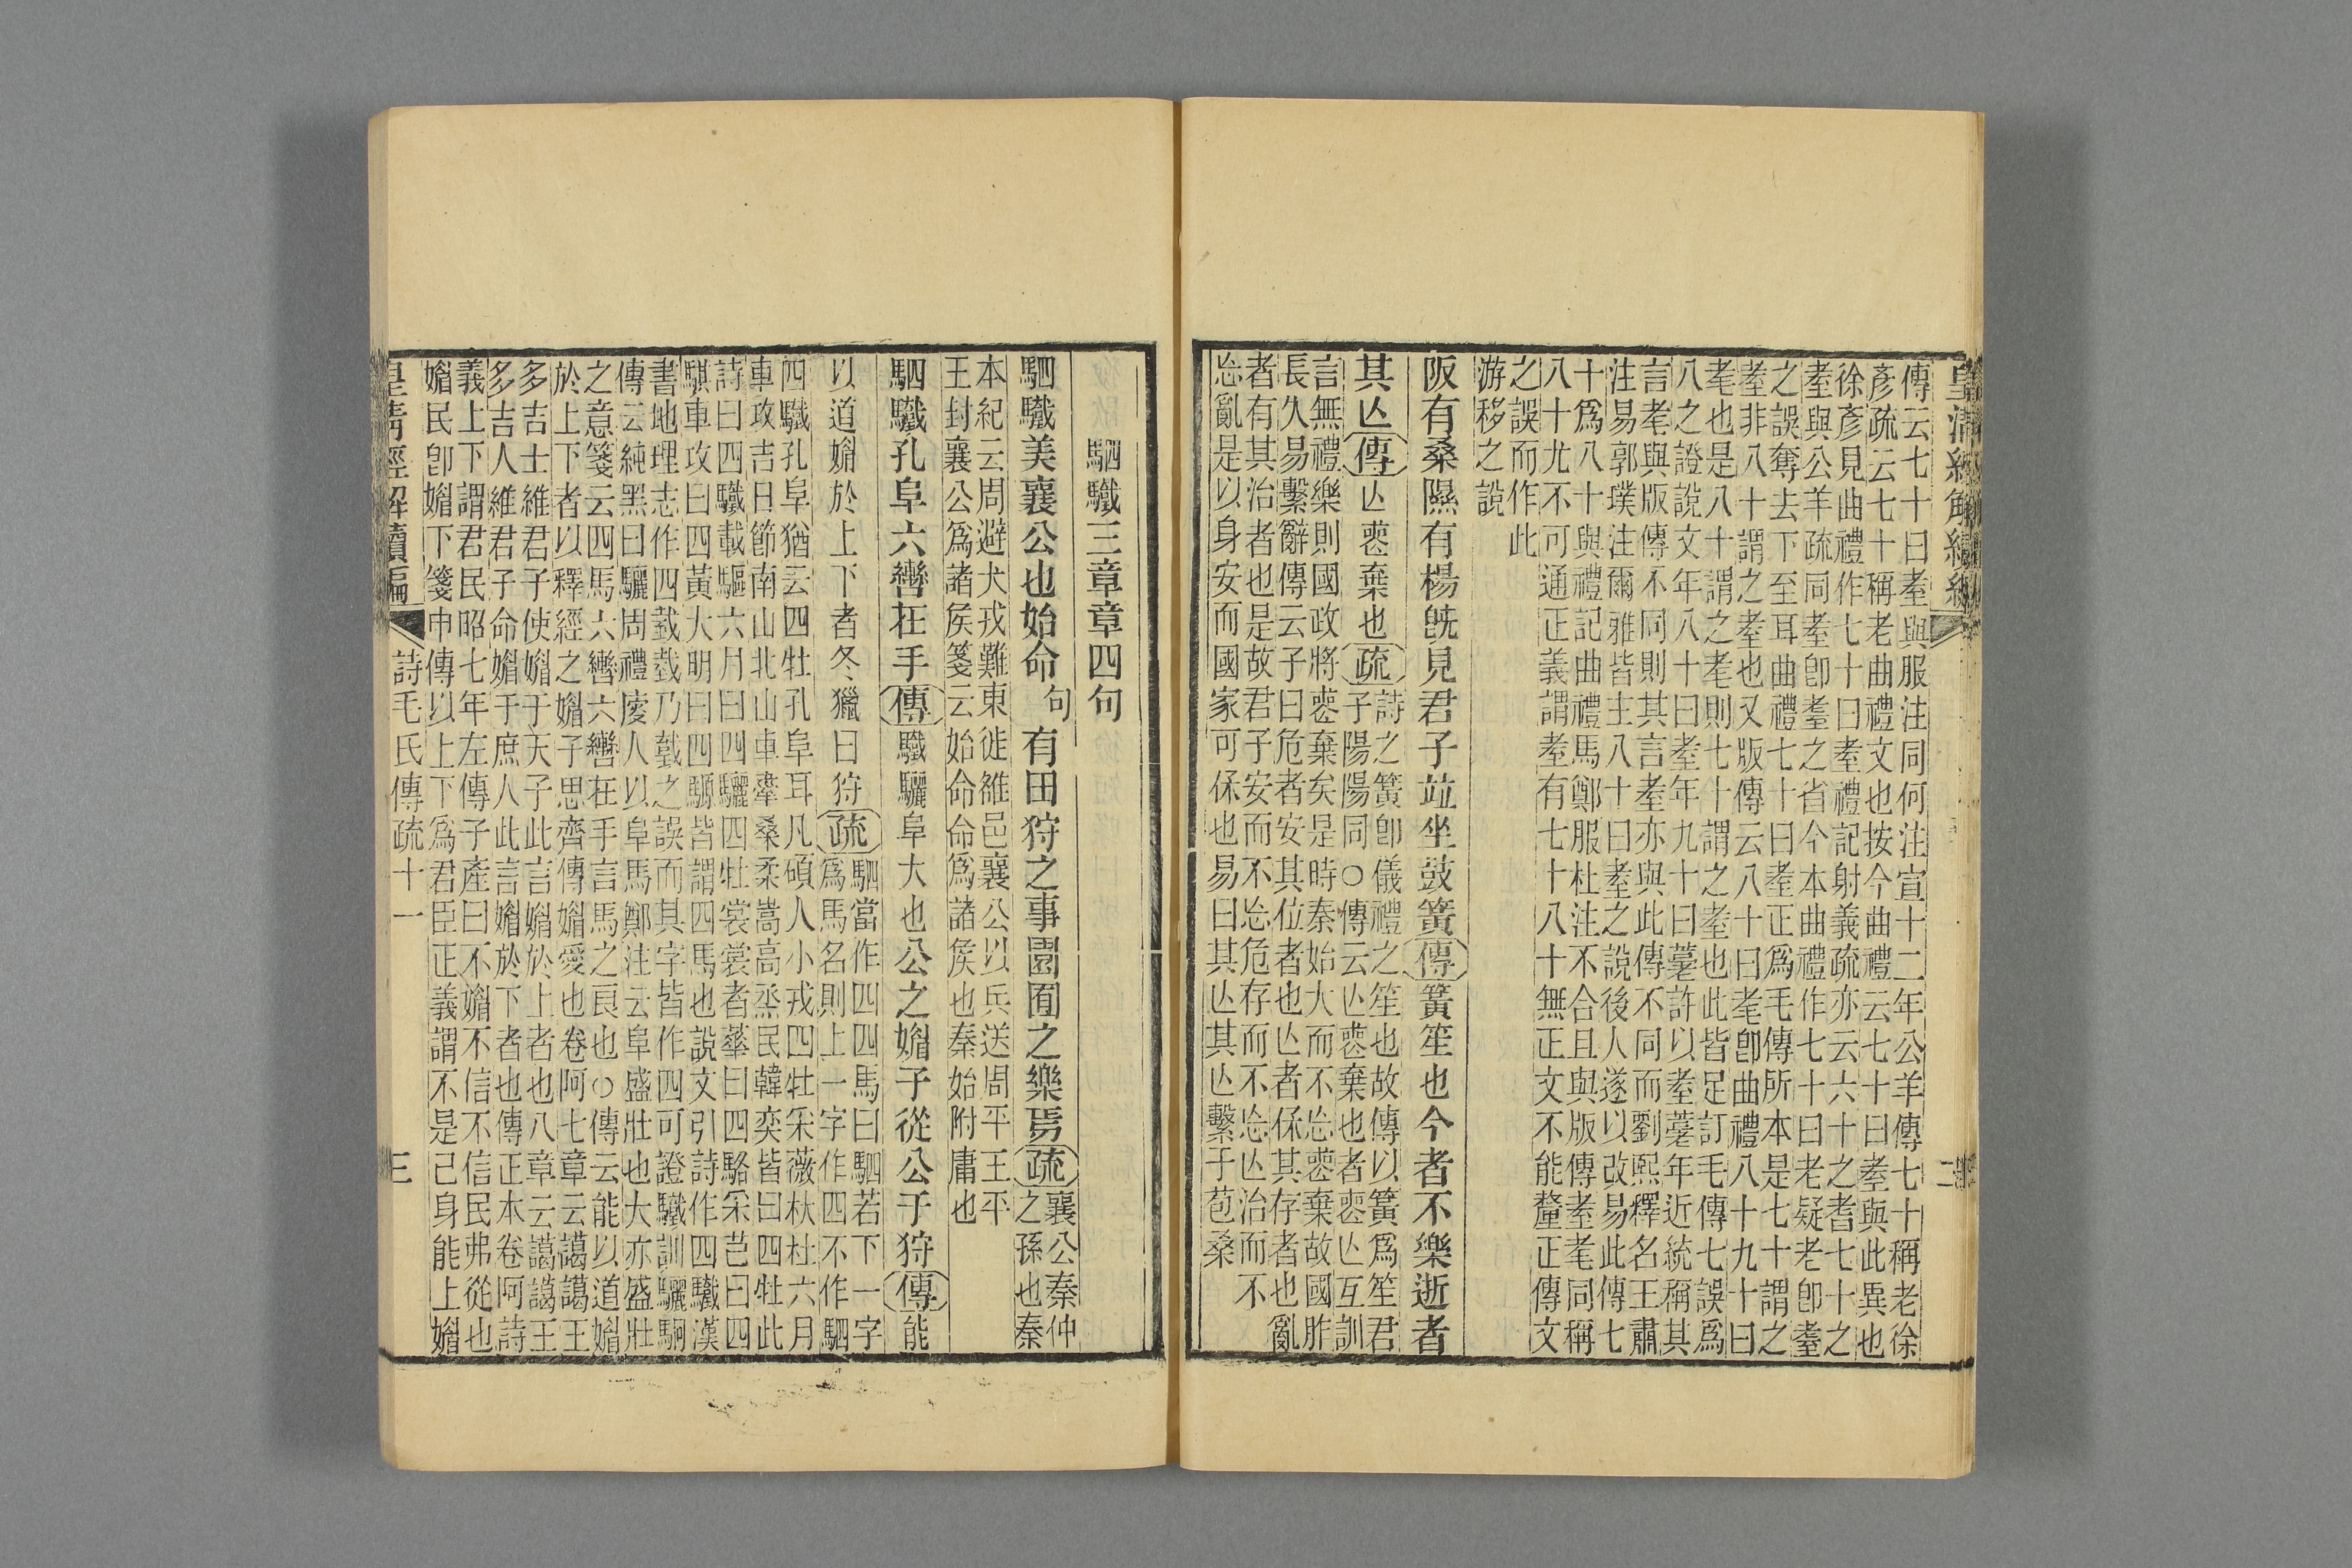 皇清經解續編 二
傳云七十曰耊與服注同何注宣十二年公羊傳七十稱老徐
彥疏云七十稱老曲禮文也按今曲禮云七十曰耊與此異也
徐彥見曲禮作七十曰耊禮記射義疏亦云六十之耆七十之
耊與公羊疏同耊卽耋之省今本曲禮作七十曰老疑老卽耋
之誤奪去下至耳曲禮七十曰耊正爲毛傳所本是七十謂之
耊非八十謂之耊也又版傳云八十曰耄卽曲禮八十九十曰
耄也是八十謂之耄則七十謂之耊也此皆足訂毛傳七誤爲
八之證說文年八十曰耊年九十曰薹許以耊薹年近統稱其
言耊與版傳不同則其言耊亦與此傳不同而劉熙釋名王肅
注易郭璞注爾雅皆主八十曰耊之說後人遂以改易此傳七
十爲八十與禮記曲禮馬鄭服杜注不合且與版傳耊耄同稱
八十尤不可通正義謂耊有七十八十無正文不能釐正傳文
之誤而作此
游移之說
阪有桑隰有楊旣見君子竝坐鼓簧傳簧笙也今者不樂逝者
其亾傳亾䘮棄也疏詩之簧卽儀禮之笙也故傳以簧爲笙君
子陽陽同○傳云亾䘮棄也者䘮亾互訓
言無禮樂則國政將䘮棄矣是時秦始大而不忘䘮棄故國胙
長久易繫辭傳云子曰危者安其位者也亾者保其存者也亂
者有其治者也是故君子安而不忘危存而不忘亾治而不
忘亂是以身安而國家可保也易曰其亾其亾繫于苞桑
駟驖三章章四句
駟驖美襄公也始命句有田狩之事園囿之樂焉疏襄公秦仲
之孫也秦
本紀云周避犬戎難東徙雒邑襄公以兵送周平王平
王封襄公爲諸矦箋云始命命爲諸矦也秦始附庸也
駟驖孔阜六轡在手傳驖驪阜大也公之媚子從公于狩傳能
以道媚於上下者冬獵曰狩疏駟當作四四馬曰駟若下一字
爲馬名則上一字作四不作駟
四驖孔阜猶云四牡孔阜耳凡碩人小戎四牡采薇杕杜六月
車攻吉日節南山北山車舝桑柔嵩高烝民韓奕皆曰四牡此
詩曰四驖載驅六月曰四驪四牡裳裳者蕐曰四駱采芑曰四
騏車攻曰四黃大明曰四騵皆謂四馬也說文引詩作四驖漢
書地理志作四㦶㦶乃㦶之誤而其字皆作四可證驖訓驪駉
傳云純黑曰驪周禮廋人以阜馬鄭注云阜盛壯也大亦盛壯
之意箋云四馬六轡六轡在手言馬之良也○傳云能以道媚
於上下者以釋經之媚子思齊傳媚愛也卷阿七章云藹藹王
多吉士維君子使媚于天子此言媚於上者也八章云藹藹王
多吉人維君子命媚于庶人此言媚於下者也傳正本卷阿詩
義上下謂君民昭七年左傳子產曰不媚不信不信民弗從也
媚民卽媚下箋申傳以上下爲君臣正義謂不是己身能上媚
皇清經解續編 詩毛氏傳疏十一 三